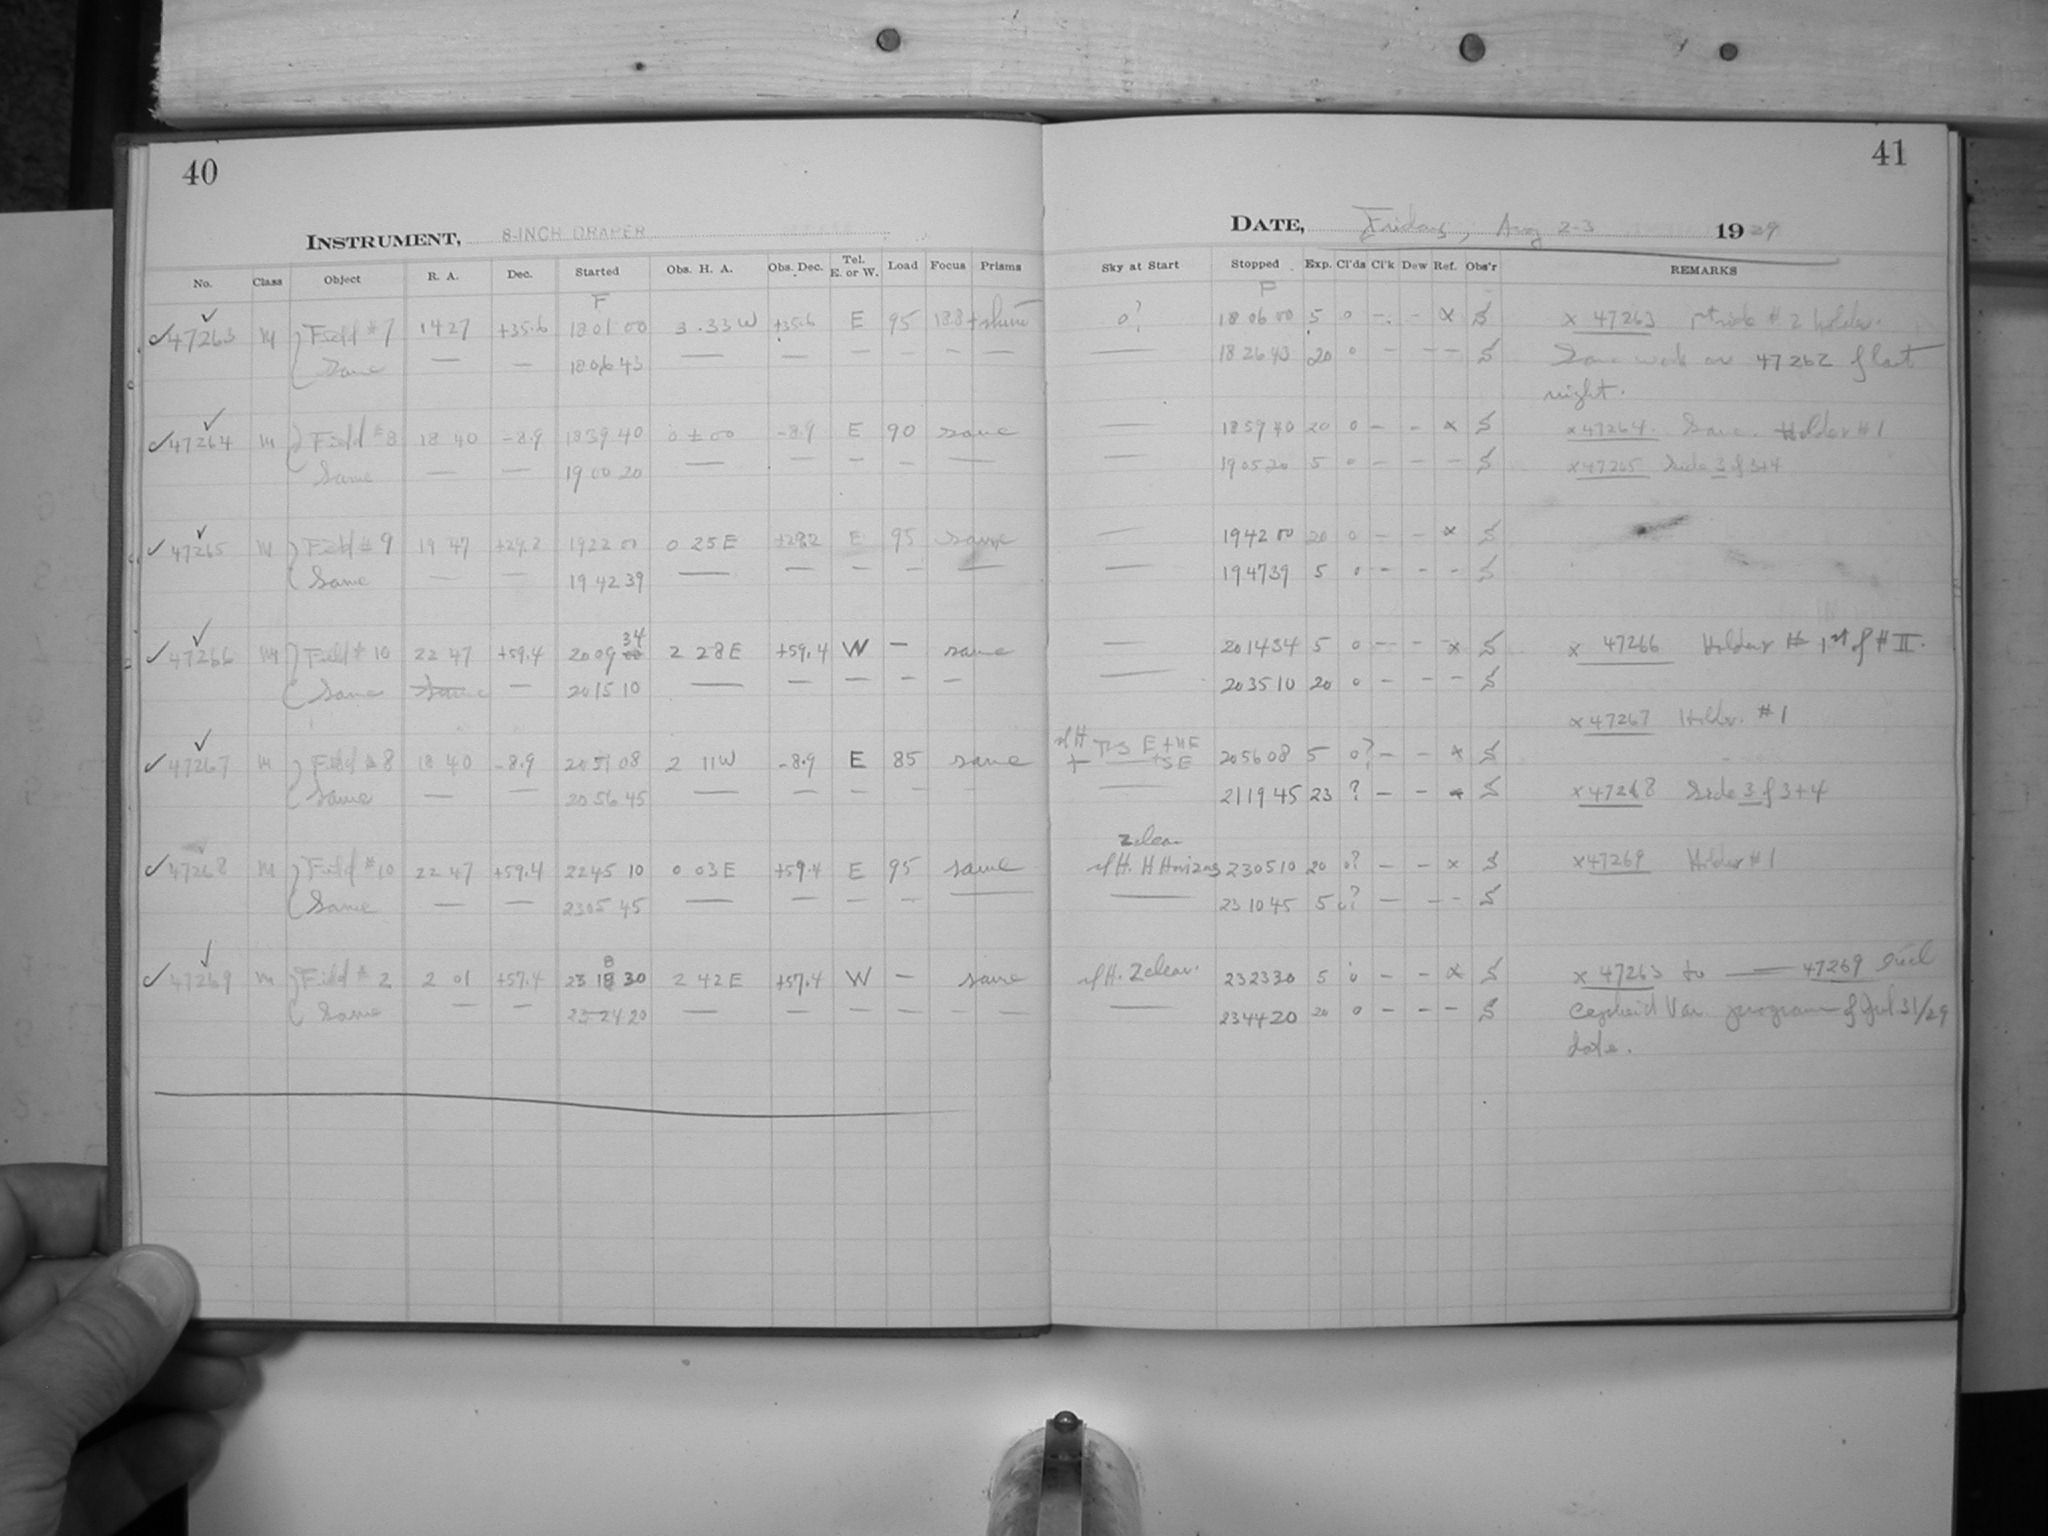 40
INSTRUMENT, 8-INCH DRAPER
No. Class Object R. A. Dec. Started Obs. H. A. Obs. Dec. Tel. E. or W. Load Focus Prisms
F
✓47263 M Field #7 14 27 +35.6 18 01 00 3 33 W +35.6 E 95 18.8
Same — — 18 06 43 — — — — — —
✓47264 M Field #8 18 40 -8.9 18 39 40 0 ± 00 -8.9 E 90 same
Same — — 19 00 20 — — — — —
✓47265 M Field #9 19 47 +29.2 19 22 00 0 25 E +29.2 E 95 same
Same — — 19 42 39 — — — — —
34
✓47266 M Field #10 22 47 +59.4 20 09 00 2 28 E +59.4 W — same
Same Same — 20 15 10 — — — — —
✓47267 M Field #8 18 40 -8.9 20 51 08 2 11 W -8.9 E 85 same
Same — — 20 56 45 — — — — —
✓47268 M Field #10 22 47 +59.4 22 45 10 0 03 E +59.4 E 95 same
Same — — 23 05 45 — — — — —
✓47269 M Field #2 2 01 +57.4 23 18 30 2 42 E +57.4 W — same
Same — — 23 24 20 — — — — — —
41
DATE, Friday, Aug 2-3 1929
Sky at Start Stopped Exp. Cl'ds Cl'k Dew Ref. Obs'r REMARKS
F
0? 18 06 00 5 0 - - x S x 47263 #2 holder.
— 18 26 43 20 0 - - - S Same work as 47262 of last
night.
— 18 59 40 20 0 - - x S x 47264. Same. Holder #1
— 19 05 20 5 0 - - - S x 47265 Side 3 of 3+4
— 19 42 00 20 0 - - x S
— 19 47 39 5 0 - - - S
— 20 14 34 5 0 - - x S x 47266 Holder # 1st of # II.
— 20 35 10 20 0 - - - S
x 47267 Holder #1
E + NE
+ SE 20 56 08 5 0? - - x S
— 21 19 45 23 ? - - x S x 47268 Side 3 of 3+4
Z clear
H. H Horizons 23 05 10 20 0? - - x S x 47269 Holder #1
— 23 10 45 5 0? - - - S
H. Z clear. 23 23 30 5 0 - - x S x 47263 to — 47269 incl
— 23 44 20 20 0 - - - S Cepheid Var. program of Jul. 31/29
date.